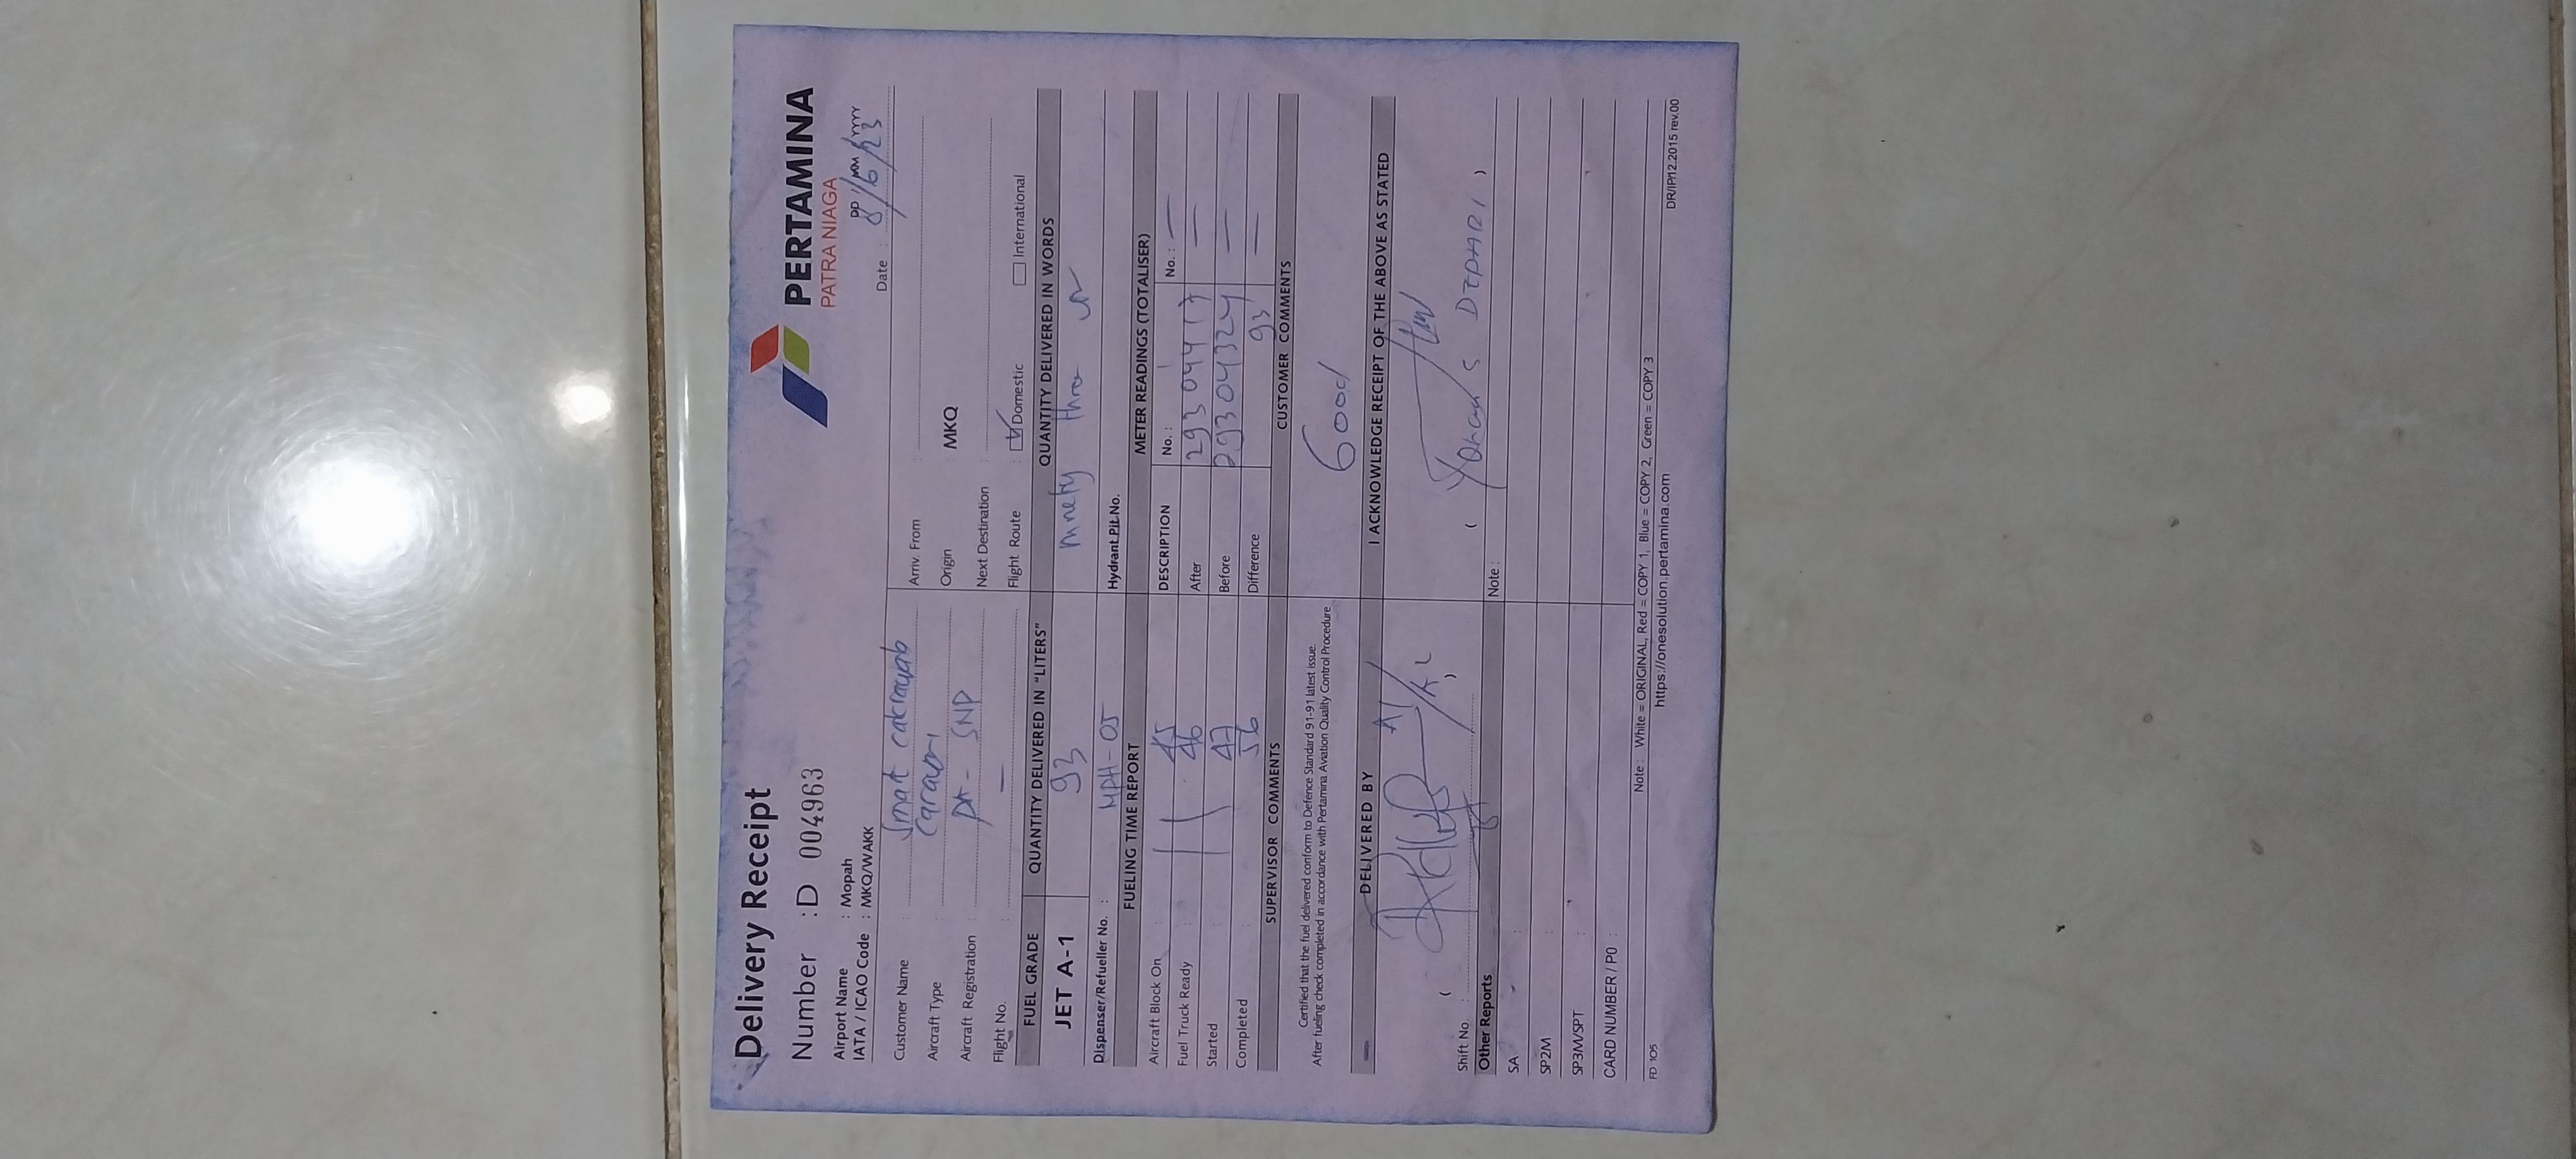 Delivery Receipt
PERTAMINA
PATRA NIAGA
Number : D 004963
Airport Name : Mopah
IATA / ICAO Code : MKQ/WAKK
DD MM
Date : 8/6/23
Customer Name : Smat cakrawab
Aircraft Type : Caravan
Aircraft Registration : PK - SNP
Flight No. : —
Arriv. From :
Origin : MKQ
Next Destination :
Flight Route : Domestic International
FUEL GRADE QUANTITY DELIVERED IN "LITERS" QUANTITY DELIVERED IN WORDS
JET A-1 93 ninety three
Dispenser/Refueller No. : MPH-05 Hydrant Pit No.
FUELING TIME REPORT METER READINGS (TOTALISER)
DESCRIPTION No. : No. : —
Aircraft Block On : 45
Fuel Truck Ready : 46
Started : 47
Completed : 56
After 29304417 —
Before 29304324 —
Difference 93 —
SUPERVISOR COMMENTS CUSTOMER COMMENTS
Certified that the fuel delivered conform to Defence Standard 91-91 latest issue.
After fueling check completed in accordance with Pertamina Aviation Quality Control Procedure
Good
DELIVERED BY I ACKNOWLEDGE RECEIPT OF THE ABOVE AS STATED
Shift No. :
Other Reports
Note :
SA :
SP2M :
SP3M/SPT :
CARD NUMBER / PO :
Note : White = ORIGINAL, Red = COPY 1, Blue = COPY 2, Green = COPY 3
https://onesolution.pertamina.com
FD 105
DR/IP/12.2015 rev.00